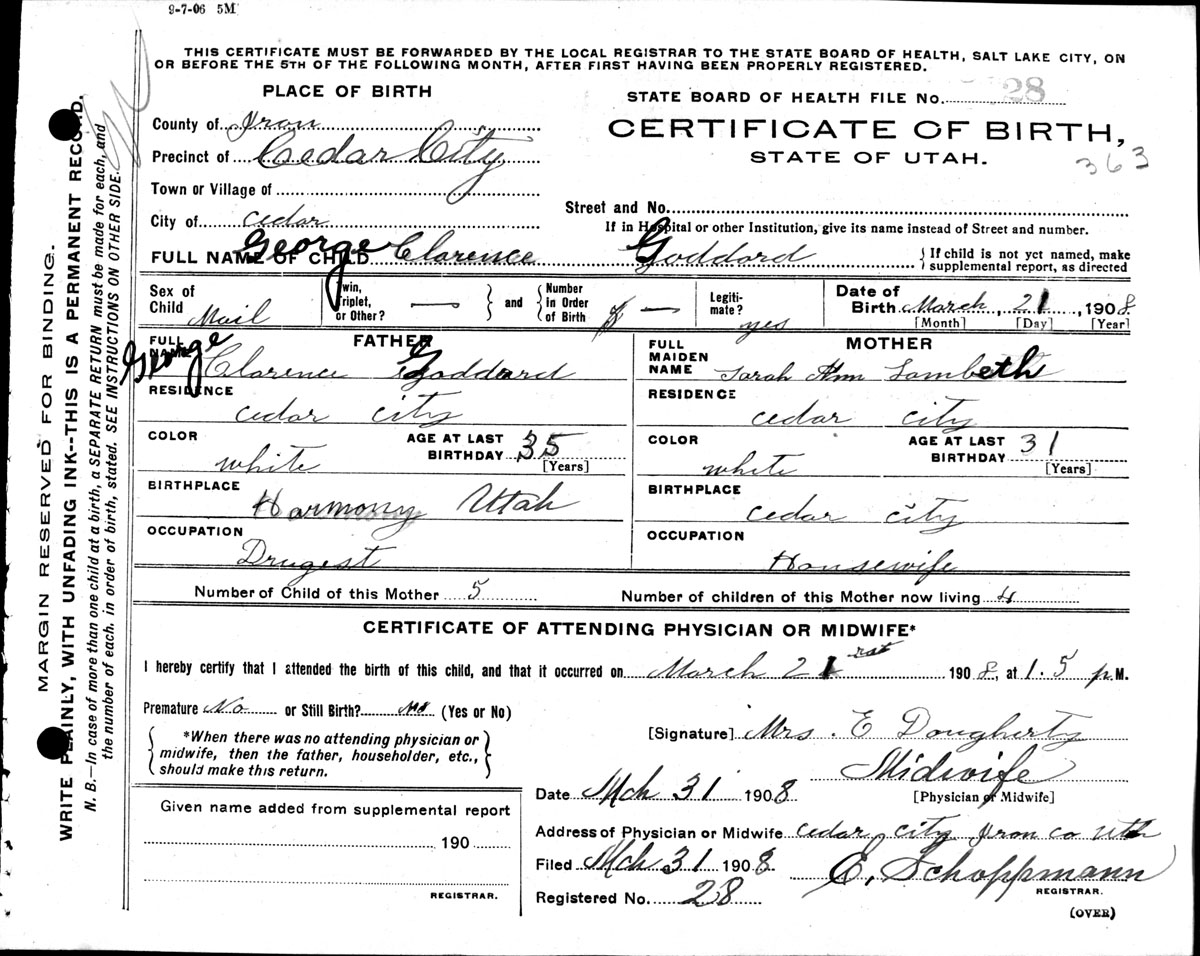 9-7-06 5M
THIS CERTIFICATE MUST BE FORWARDED BY THE LOCAL REGISTRAR TO THE STATE BOARD OF HEALTH, SALT LAKE CITY, ON
OR BEFORE THE 5TH OF THE FOLLOWING MONTH, AFTER FIRST HAVING BEEN PROPERLY REGISTERED.
MARGIN RESERVED FOR BINDING.
WRITE PLAINLY, WITH UNFADING INK--THIS IS A PERMANENT RECORD.
N. B.—In case of more than one child at a birth, a SEPARATE RETURN must be made for each, and
the number of each, in order of birth, stated. SEE INSTRUCTIONS ON OTHER SIDE.
PLACE OF BIRTH
County of Iron
Precinct of Cedar City
Town or Village of
City of cedar
STATE BOARD OF HEALTH FILE No. 28
CERTIFICATE OF BIRTH,
STATE OF UTAH.
363
Street and No.
If in Hospital or other Institution, give its name instead of Street and number.
FULL NAME OF CHILD George Clarence Goddard
If child is not yet named, make
supplemental report, as directed
Sex of Child Mail
Twin, Triplet, or Other? —
and
Number in Order of Birth —
Legiti-mate? yes
Date of Birth March 21, 1908
[Month] [Day] [Year]
FATHER
FULL NAME George Clarence Goddard
RESIDENCE
cedar city
COLOR white
AGE AT LAST BIRTHDAY 35
[Years]
BIRTHPLACE
Harmony Utah
OCCUPATION
Drugest
MOTHER
FULL MAIDEN NAME Sarah Ann Lambeth
RESIDENCE
cedar city
COLOR white
AGE AT LAST BIRTHDAY 31
[Years]
BIRTHPLACE
cedar city
OCCUPATION
Housewife
Number of Child of this Mother 5
Number of children of this Mother now living 4
CERTIFICATE OF ATTENDING PHYSICIAN OR MIDWIFE*
I hereby certify that I attended the birth of this child, and that it occurred on March 21 1908, at 1.5 p.M.
Premature No or Still Birth? No (Yes or No)
*When there was no attending physician or
midwife, then the father, householder, etc.,
should make this return.
[Signature] Mrs. E Dougherty
Midwife
[Physician or Midwife]
Date Mch 31 1908
Address of Physician or Midwife cedar city Iron co Utah
Filed Mch 31 1908
E. Schoppmann
REGISTRAR.
Registered No. 28
(OVER)
Given name added from supplemental report
190
REGISTRAR.